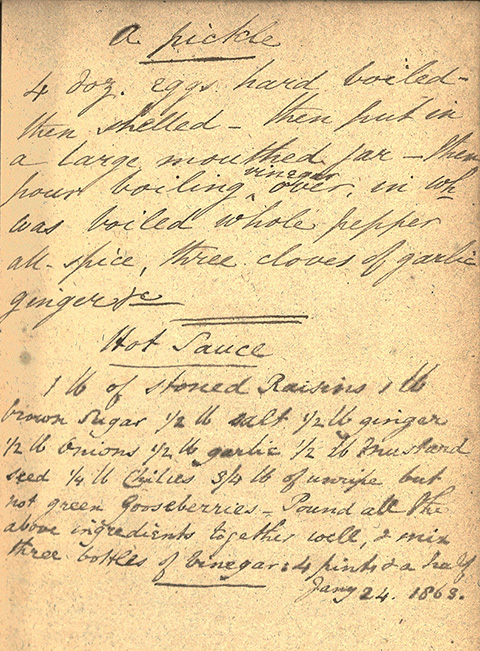 A pickle
4 doz. eggs hard boiled-
then shelled - then put in
a large mouthed jar - then
pour boiling ^vinegar over, in wh
was boiled whole pepper
all-spice, three cloves of garlic
ginger &c
Hot Sauce
1 lb of stoned Raisins 1 lb
brown Sugar 1/2 lb salt 1/2 lb ginger
1/2 lb Onions 1/2 lb garlic 1/2 lb Mustard
seed 1/4 lb Chilies 3/4 lb of unripe but
not green Gooseberries - Pound all the
above ingredients together well, & mix
three bottles of Vinegar: 4 pints & a half
Jany 24. 1863.